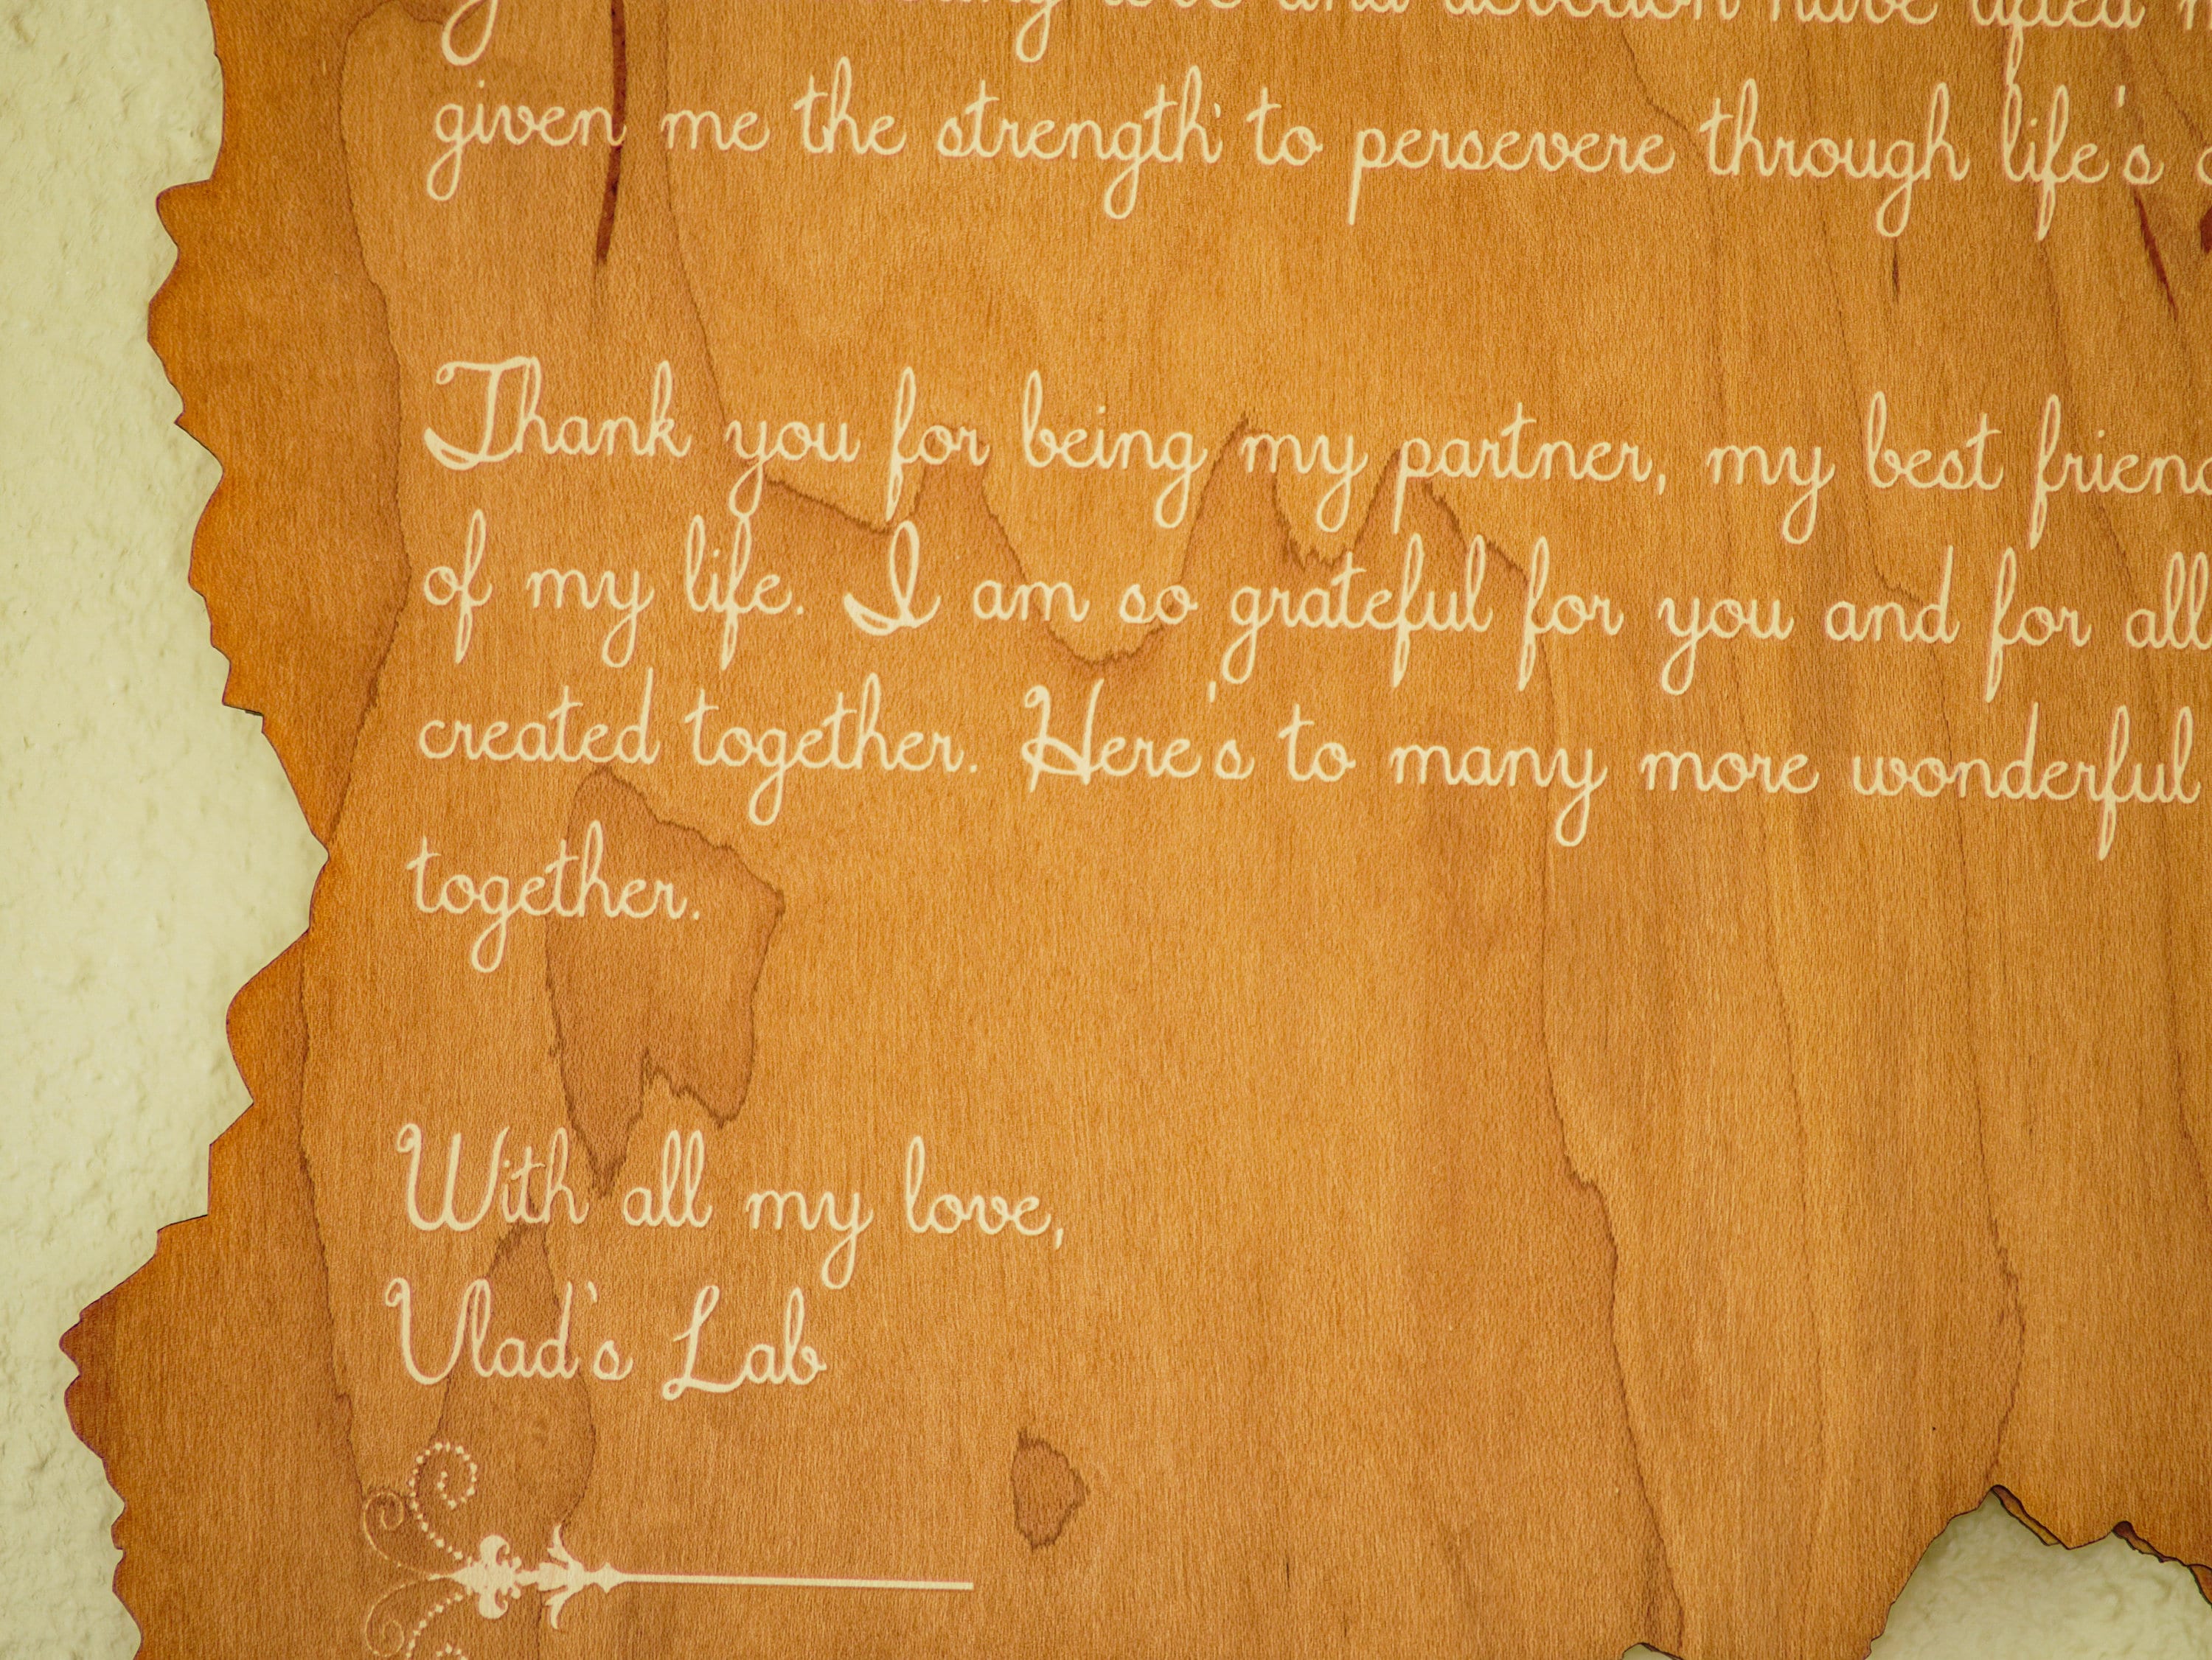 love and devotion have lifted
given me the strength to persevere through life's
Thank you for being my partner, my best
of my life. I am so grateful for you and for all
created together. Here's to many more wonderful
together.
With all my love,
Vlad's Lab